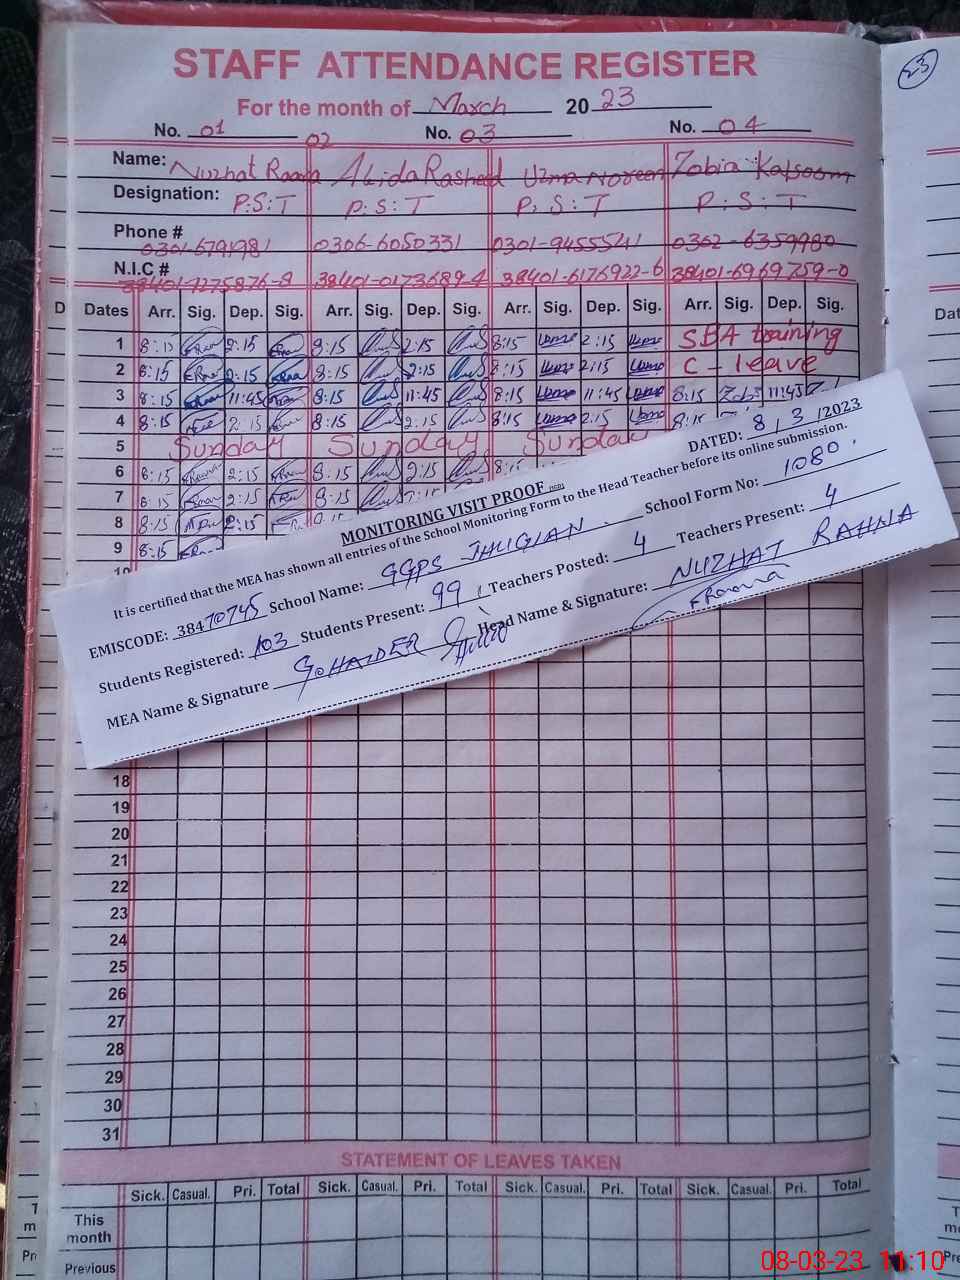 STAFF ATTENDANCE REGISTER
23
For the month of March 2023
No. 01 02 No. 03 No. 04
Name: Nuzhat Raana Abida Rasheed Uzma Noreen Zobia Kalsoom
Designation: P.S.T P.S.T P.S.T P.S.T
Phone # 0301-6791981 0306-6050331 0301-9455541 0302-6359980
N.I.C # 38401-7275876-8 38401-0173689-4 38401-6176922-6 38401-6969759-0
D Dates Arr. Sig. Dep. Sig. Arr. Sig. Dep. Sig. Arr. Sig. Dep. Sig. Arr. Sig. Dep. Sig. Dat
1 8:15 2:15 8:15 2:15 8:15 2:15 SBA training
2 8:15 2:15 8:15 2:15 8:15 2:15 C-leave
3 8:15 11:45 8:15 11:45 8:15 11:45 8:15 11:45
4 8:15 2:15 8:15 2:15 8:15 2:15 8:15
5 Sunday Sunday Sunday
6 8:15 2:15 8:15 2:15 8:15
7 8:15 2:15 8:15 2:15
8 8:15 2:15 8:15
9 8:15
10
MONITORING VISIT PROOF DATED: 8, 3, 2023
It is certified that the MEA has shown all entries of the School Monitoring Form to the Head Teacher before its online submission.
EMISCODE: 38470745 School Name: GGPS JHUGIAN School Form No: 1080
Students Registered: 103 Students Present: 99 Teachers Posted: 4 Teachers Present: 4
MEA Name & Signature G. HAIDER Head Name & Signature: NUZHAT RAHNA
18
19
20
21
22
23
24
25
26
27
28
29
30
31
STATEMENT OF LEAVES TAKEN
Sick. Casual. Pri. Total Sick. Casual. Pri. Total Sick. Casual. Pri. Total Sick. Casual. Pri. Total
This month
Previous
08-03-23 11:10